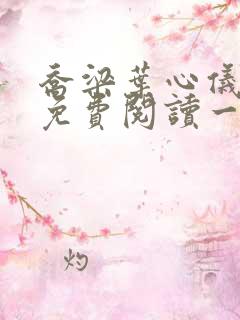 喬梁葉心儀
免費閱讀一
灼